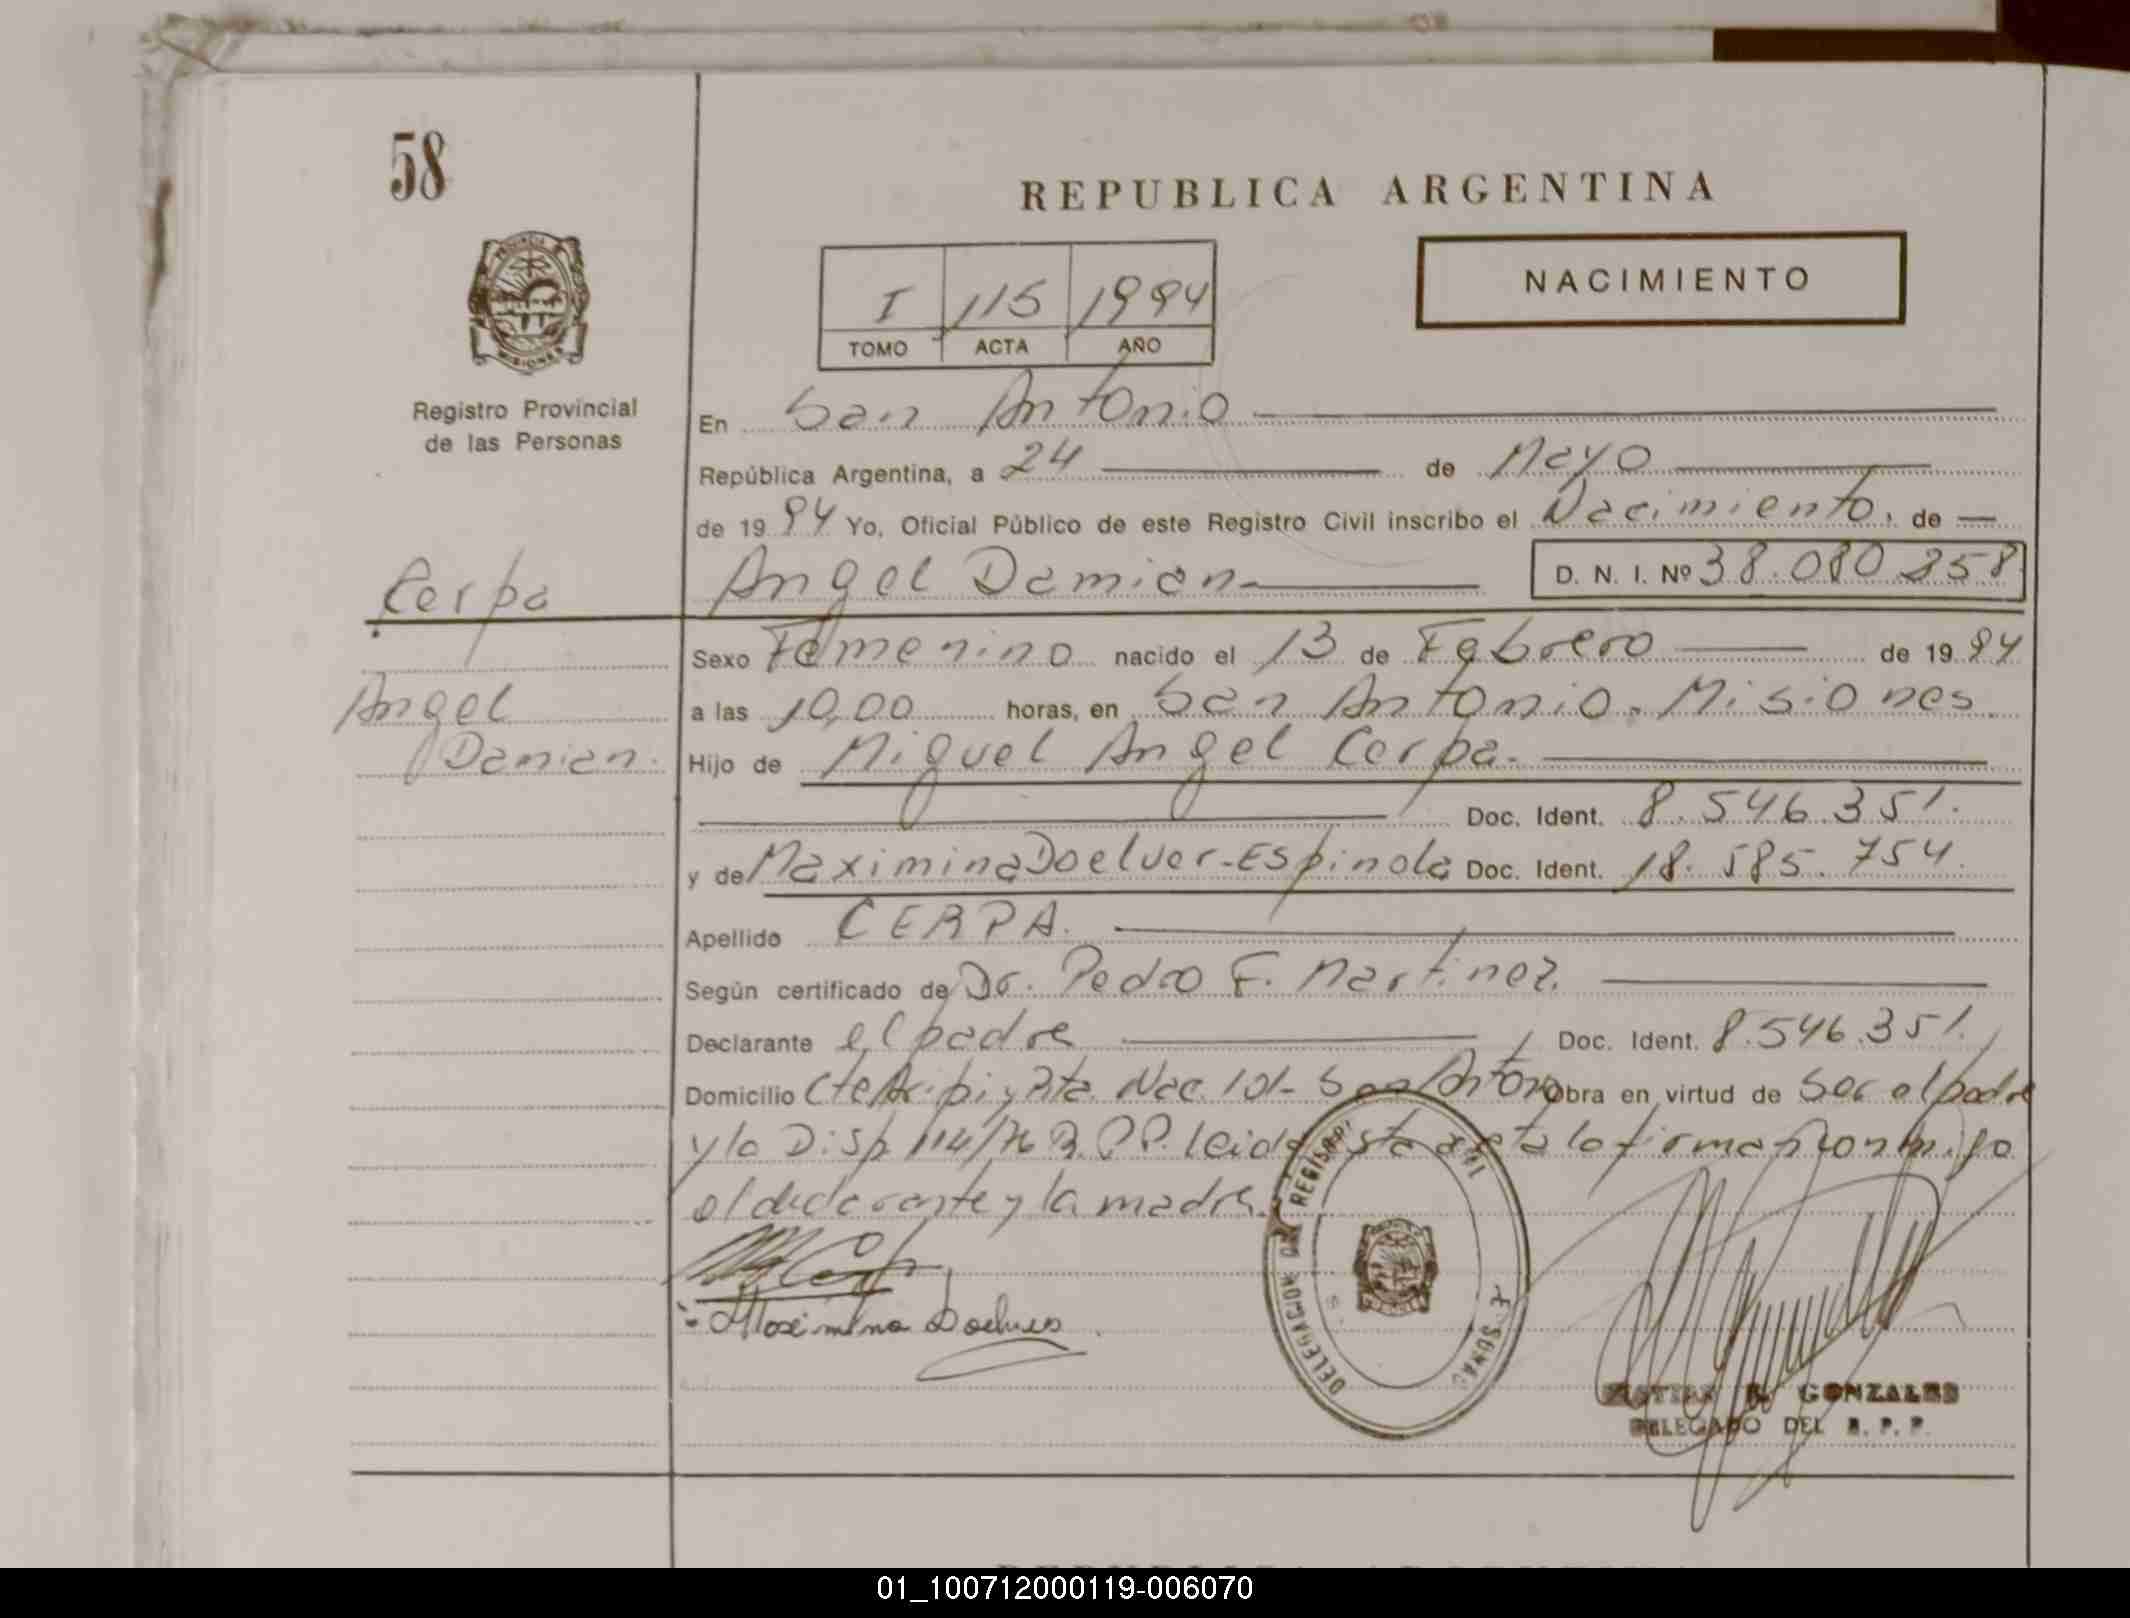 58
REPUBLICA ARGENTINA
NACIMIENTO
I 115 1994
TOMO ACTA AÑO
PROVINCIA DE
MISIONES
Registro Provincial
de las Personas
En San Antonio
República Argentina, a 24 de Mayo
de 19 94 Yo, Oficial Público de este Registro Civil inscribo el Nacimiento. de
Cerpa
Angel Damian
D. N. I. Nº 38.080.258
Sexo Femenino nacido el 13 de Febrero de 19 94
Angel
Damian.
a las 10,00 horas, en San Antonio. Misiones.
Hijo de Miguel Angel Cerpa.
Doc. Ident. 8.546.351.
y de Maximina Doelver-Espinola Doc. Ident. 18.585.754.
Apellido CERPA.
Según certificado de Dr. Pedro F. Martinez.
Declarante el padre Doc. Ident. 8.546.351.
Domicilio y Rta. Nac. 101- San Antonio Obra en virtud de Ser el padre
y la Disp. 114/76 R.P.P. leida esta acta la firman conmigo
el declarante y la madre.
Maximina
DELEGACION DEL REGIS.
MATIAS R. GONZALES
DELEGADO DEL R. P. P.
01_100712000119-006070